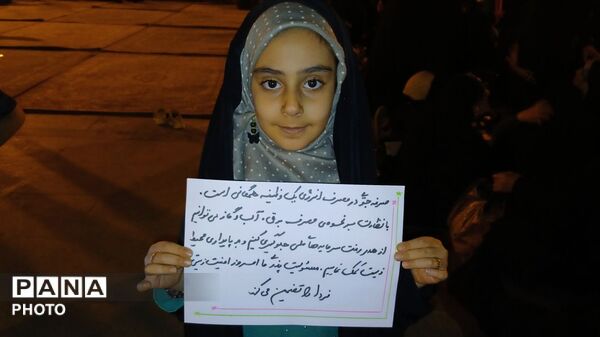 صرفه جویی در مصرف انرژی یک وظیفه همگانی است.
با نظارت بر نحوه ی مصرف برق، آب و گاز می توانیم
از هدر رفت سرمایه های ملی جلوگیری کنیم و به پایداری محیط
زیست کمک نماییم. مسئولیت پذیری ما امروز امنیت زیستی
فردا را تضمین می کند
PANA
PHOTO